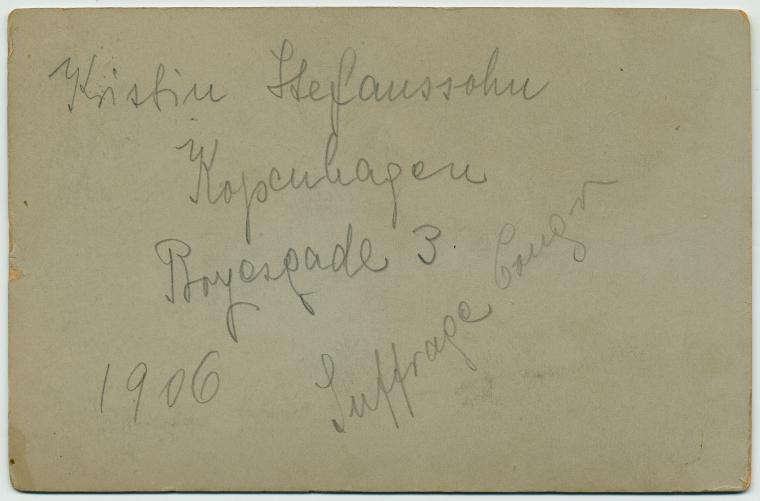 Kristin Stefanssohn
Kopenhagen
Boyesgade 3.
1906
Suffrage Congr